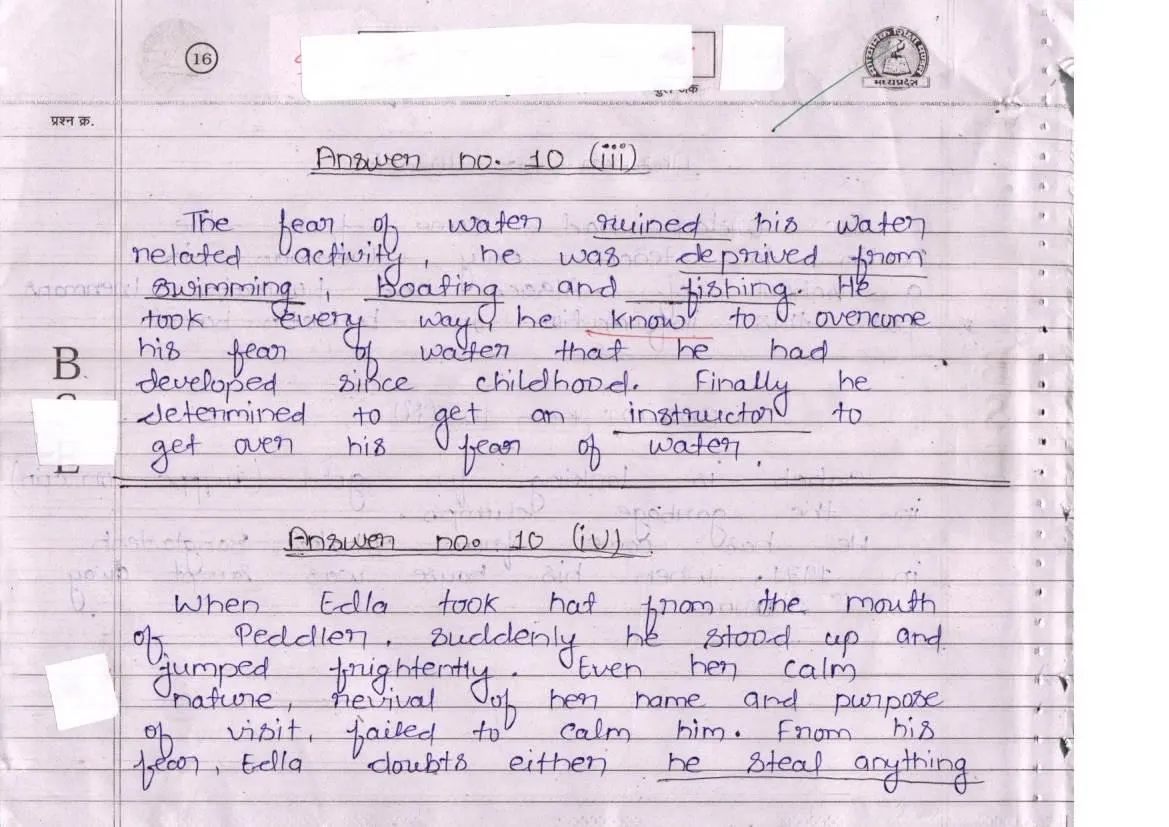 16
मध्यप्रदेश
प्रश्न क्र.
Answer no. 10 (iii)
The fear of water ruined his water
related activity, he was deprived from
swimming, Boating and fishing. He
took every way, he know to overcome
his fear of water that he had
B
developed since childhood. Finally he
determined to get an instructor to
get over his fear of water.
Answer no. 10 (iv)
When Edla took hat from the mouth
of Peddler, suddenly he stood up and
jumped frightently. Even her calm
nature, revival of her name and purpose
of visit, failed to calm him. From his
fear, Edla doubts either he steal anything